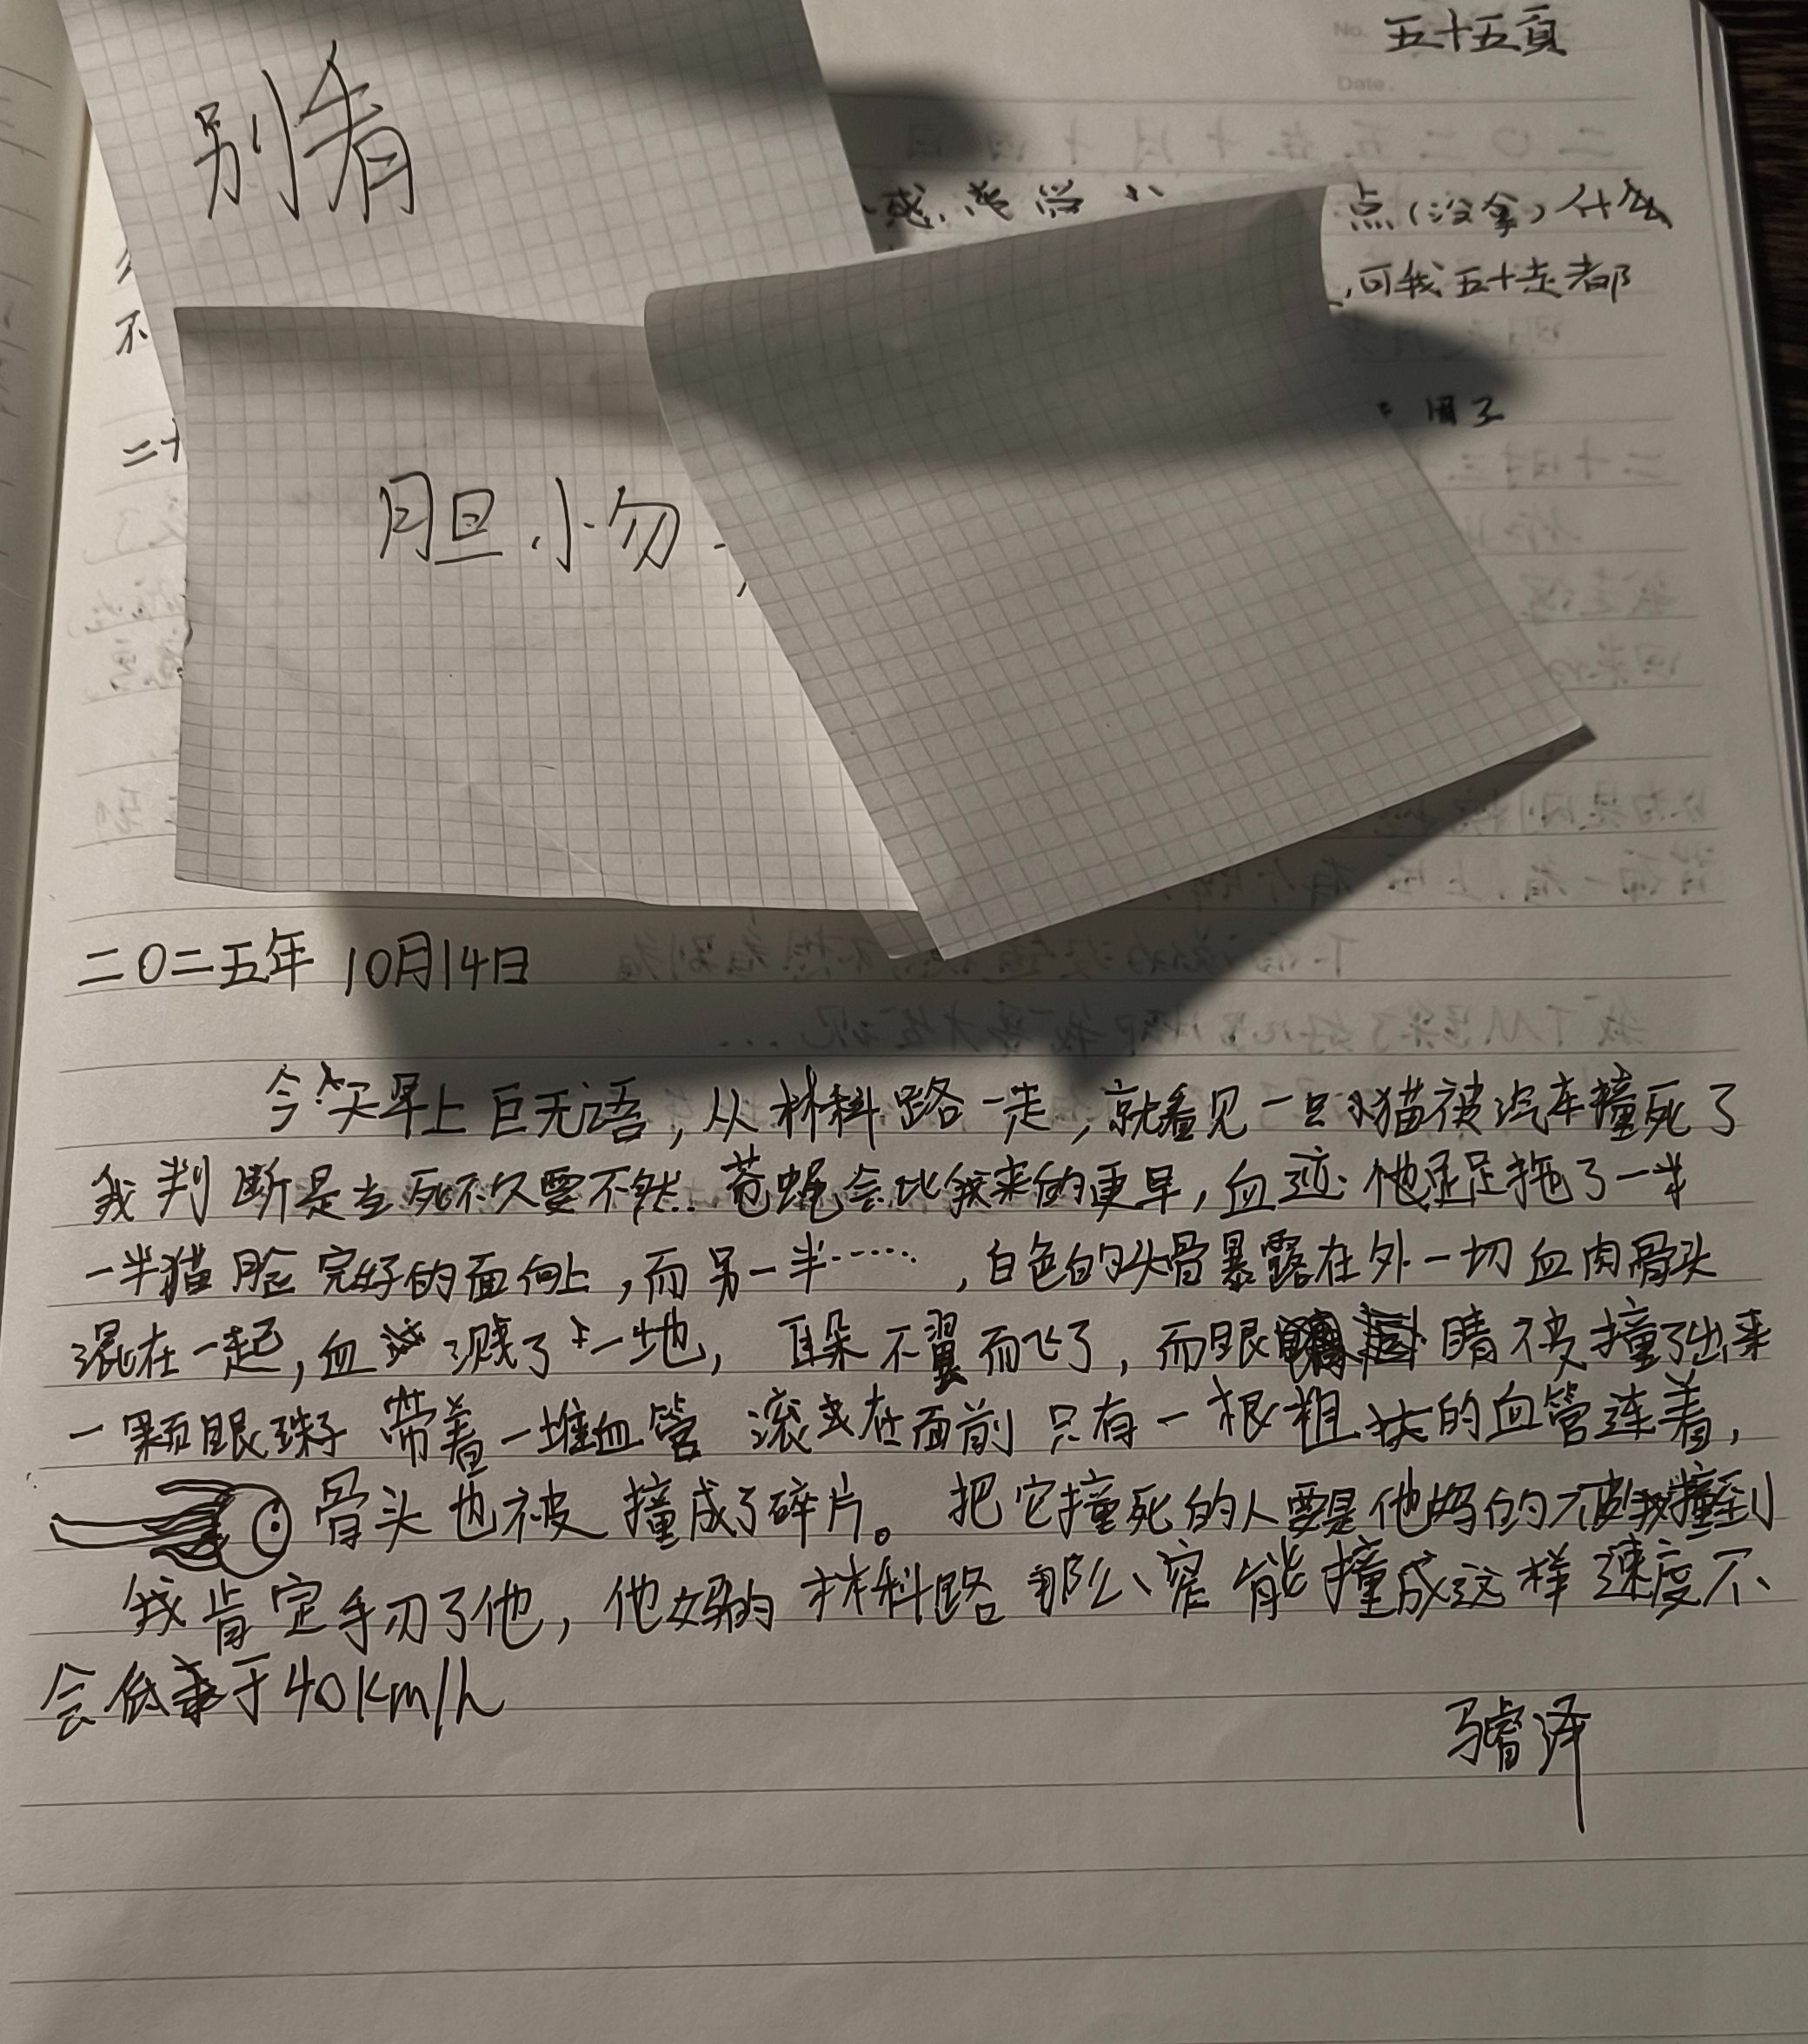 五十五頁
别看
感,
点(没拿)什么
,可我五十走都
不
二十
用了
胆小勿
二〇二五年 10月14日
今天早上巨无语,从材料路一走,就看见一只小猫被汽车撞死了
我判断是 死不久要不然 苍蝇会比我来的更早,血迹 他足足拖了一半
一半猫脸完好的面向上,而另一半……,白色的头骨暴露在外一切血肉骨头
混在一起,血 溅了一地, 耳朵不翼而飞了,而眼 睛被撞了出来
一颗眼球子带着一堆血管 滚 在面前 只有一根粗壮的血管连着,
骨头也被撞成了碎片。把它撞死的人要是他妈的 被我撞到
我肯定手刃了他,他妈的材料路那么窄能撞成这样速度不
会低于40km/h
骖睿泽